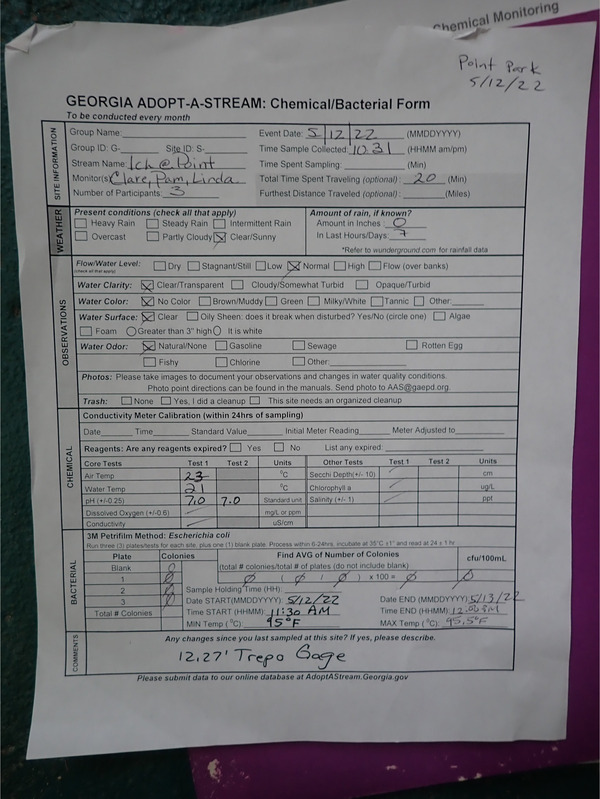 Chemical Monitoring
Point Park
5/12/22
GEORGIA ADOPT-A-STREAM: Chemical/Bacterial Form
To be conducted every month
SITE INFORMATION
Group Name: Event Date: 5/12/22 (MMDDYYYY)
Group ID: G- Site ID: S- Time Sample Collected: 10 31 (HHMM am/pm)
Stream Name: Ich @ Point Time Spent Sampling: (Min)
Monitor(s): Clare, Pam, Linda Total Time Spent Traveling (optional): 20 (Min)
Number of Participants: 3 Furthest Distance Traveled (optional): (Miles)
WEATHER
Present conditions (check all that apply) Amount of rain, if known?
Heavy Rain Steady Rain Intermittent Rain Amount in Inches 0
Overcast Partly Cloudy Clear/Sunny In Last Hours/Days: 7
*Refer to wunderground.com for rainfall data
OBSERVATIONS
Flow/Water Level: Dry Stagnant/Still Low Normal High Flow (over banks)
(check all that apply)
Water Clarity: Clear/Transparent Cloudy/Somewhat Turbid Opaque/Turbid
Water Color: No Color Brown/Muddy Green Milky/White Tannic Other:
Water Surface: Clear Oily Sheen: does it break when disturbed? Yes/No (circle one) Algae
Foam Greater than 3" high It is white
Water Odor: Natural/None Gasoline Sewage Rotten Egg
Fishy Chlorine Other:
Photos: Please take images to document your observations and changes in water quality conditions.
Photo point directions can be found in the manuals. Send photo to AAS@gaepd.org.
Trash: None Yes, I did a cleanup This site needs an organized cleanup
CHEMICAL
Conductivity Meter Calibration (within 24hrs of sampling)
Date Time Standard Value Initial Meter Reading Meter Adjusted to
Reagents: Are any reagents expired? Yes No List any expired:
Core Tests Test 1 Test 2 Units Other Tests Test 1 Test 2 Units
Air Temp 23 °C Secchi Depth(+/- 10) cm
Water Temp 21 °C Chlorophyll a ug/L
pH (+/-0.25) 7.0 7.0 Standard unit Salinity (+/- 1) ppt
Dissolved Oxygen (+/-0.6) mg/L or ppm
Conductivity uS/cm
BACTERIAL
3M Petrifilm Method: Escherichia coli
Run three (3) plates/tests for each site, plus one (1) blank plate. Process within 6-24hrs, incubate at 35°C ±1° and read at 24 ± 1 hr.
Plate Colonies Find AVG of Number of Colonies cfu/100mL
Blank 0 (total # colonies/total # of plates (do not include blank)
1 0 0 ( 0 / 0 ) x 100 = 0 0
2 0 Sample Holding Time (HH):
3 0 Date START(MMDDYYYY) 5/12/22 Date END (MMDDYYYY) 5/13/22
Total # Colonies Time START (HHMM): 11:30 AM Time END (HHMM):
MIN Temp (°C): 95°F MAX Temp (°C): 95.5°F
COMMENTS
Any changes since you last sampled at this site? If yes, please describe.
12.27' Trepo Gage
Please submit data to our online database at AdoptAStream.Georgia.gov